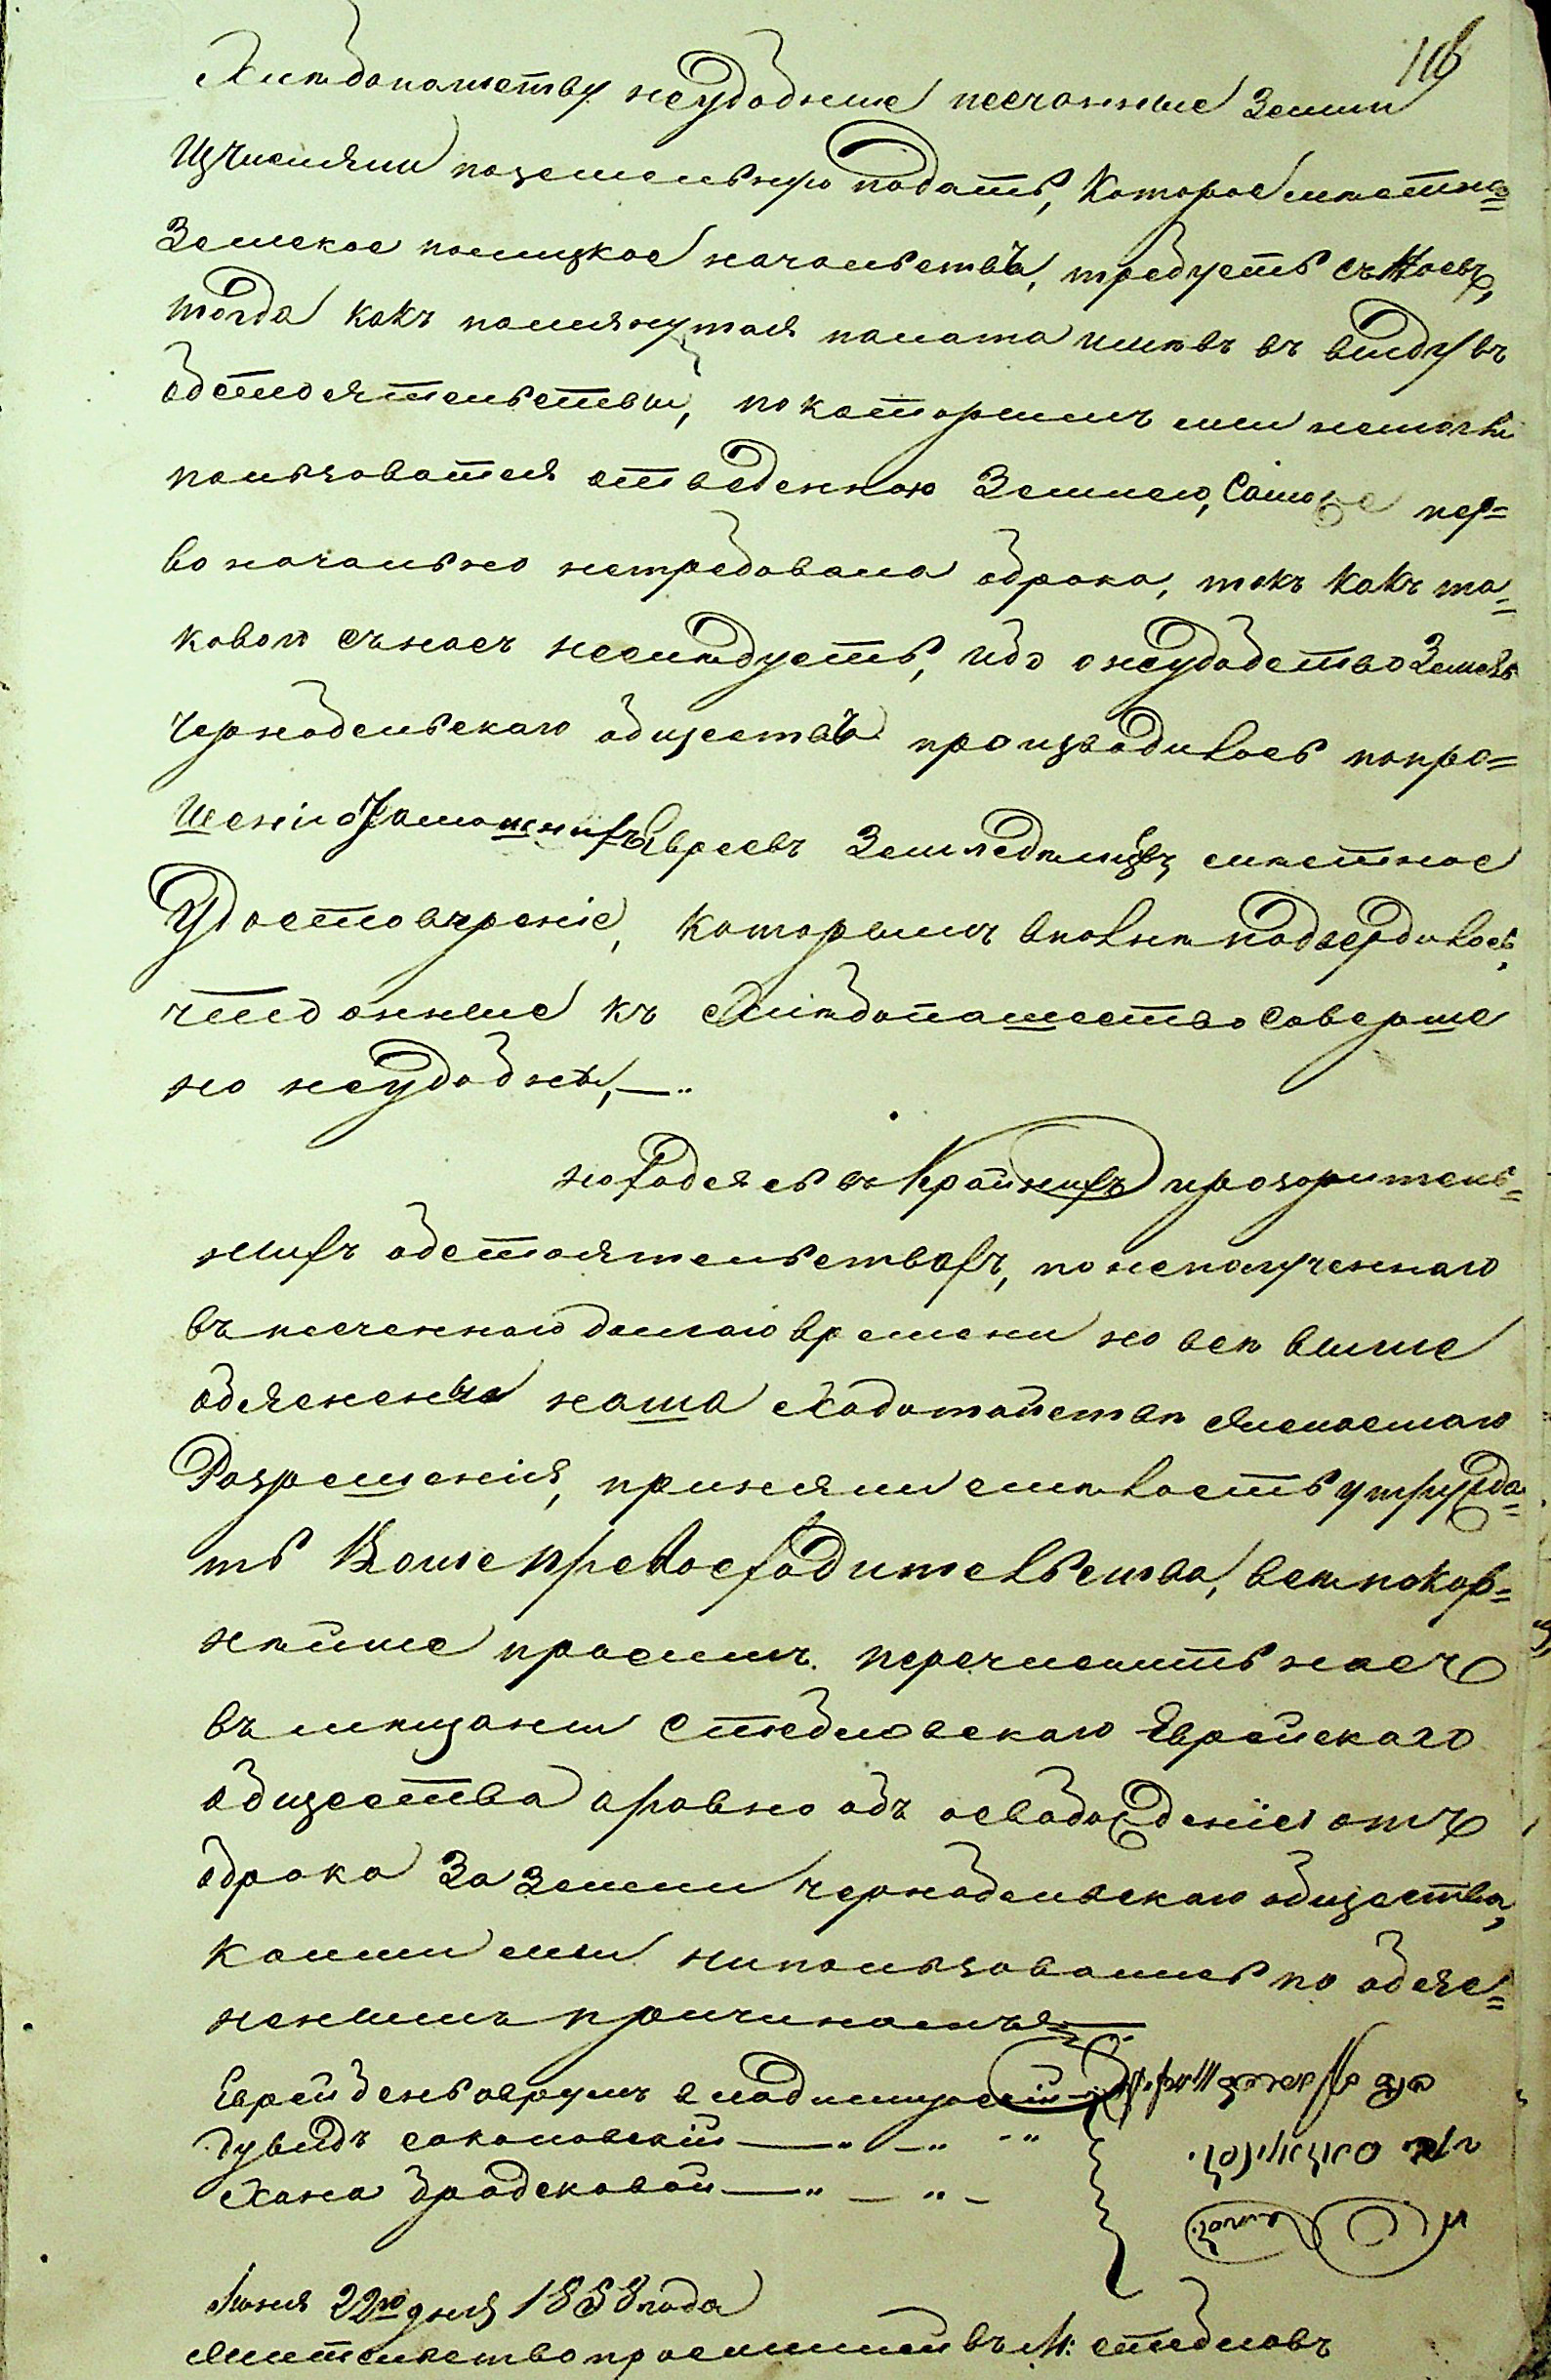 116
Хлѣбопашеству неудобные песчанные земли
Изчислили поземельную подать, Которое мѣстное
Земское полицкое начальства, требуетъ съ насъ,
тогда какъ помянутая палата имѣвъ въ виду въ
обстоятельствы, по которымъ мы немогли
пользоватся отведенною Землею, Самое пер=
воначально нетребовала оброка, такъ какъ та=
ковой съ насъ неслѣдуетъ, ибо о неудобство Земель
Чернобельскаго общества производилось попро=
шенію Тамошнихъ Евреевъ Земледѣльцевъ мѣстное
Удостовѣреніе, которымъ вполнѣ подвердилось,
что онные къ хлѣбопашество соверше
но неудобны,—
находясь въ Крайнихъ прозорительь=
ныхъ обстоятельствахъ, по неполученнаго
въ теченнаго долгаго времени на всѣ выше
обясненыя наша Ходатайствѣ
Разрешенія, приняли смѣлость утружда=
ть Ваше превосходительства, всѣпокор=
нѣйше просимъ. перечислить насъ
въ мѣщаны Стебловскаго Еврейскаго
общества а равно объ освобожденіи отъ
оброка За Земли чернобельскаго общества,
коими мы нипользовались по обяс=
ненымъ причинамъ
Еврей Бень оврумъ владимирскій
Дувидъ соколовскій — „ — „ - „
Хана Бродсковой — „ — „ —
Іюня 22го дня 1858 года
Жителство просителей въ М: стебловъ